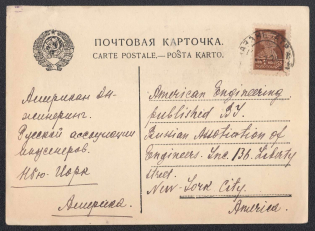 ПОЧТОВАЯ КАРТОЧКА.
CARTE POSTALE.—POŜTA KARTO.
Американ Эн-
жинеринг.
Русской ассоциации
инженеров.
Нью-Йорк
Америка.
American Engineering
published BY.
Russian Association of
Engineers. Inc. 136. Liberty
street.
New-York City.
America.